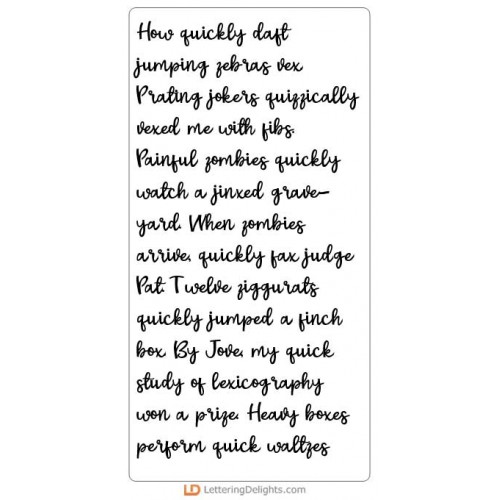 How quickly daft
jumping zebras vex
Prating jokers quizzically
vexed me with fibs.
Painful zombies quickly
watch a jinxed grave-
yard. When zombies
arrive, quickly fax judge
Pat. Twelve ziggurats
quickly jumped a finch
box. By Jove, my quick
study of lexicography
won a prize. Heavy boxes
perform quick waltzes
LD LetteringDelights.com